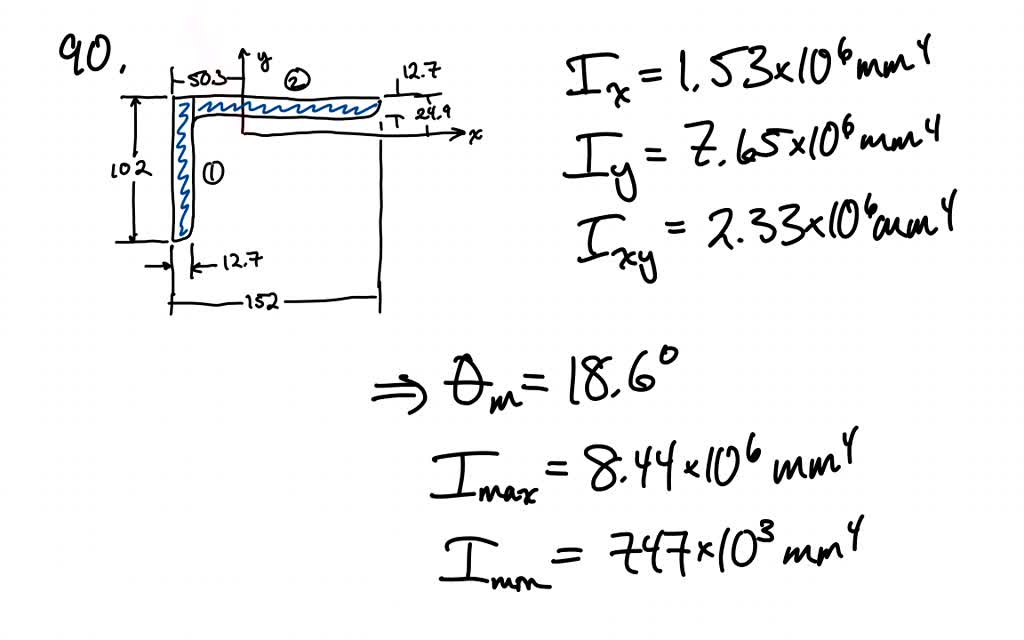 90.
y
50.3
②
12.7
24.9
x
102
①
12.7
152
I_x = 1.53×10⁶ mm⁴
I_y = 7.65×10⁶ mm⁴
I_xy = 2.33×10⁶ mm⁴
⇒ θ_m = 18.6°
I_max = 8.44×10⁶ mm⁴
I_min = 747×10³ mm⁴